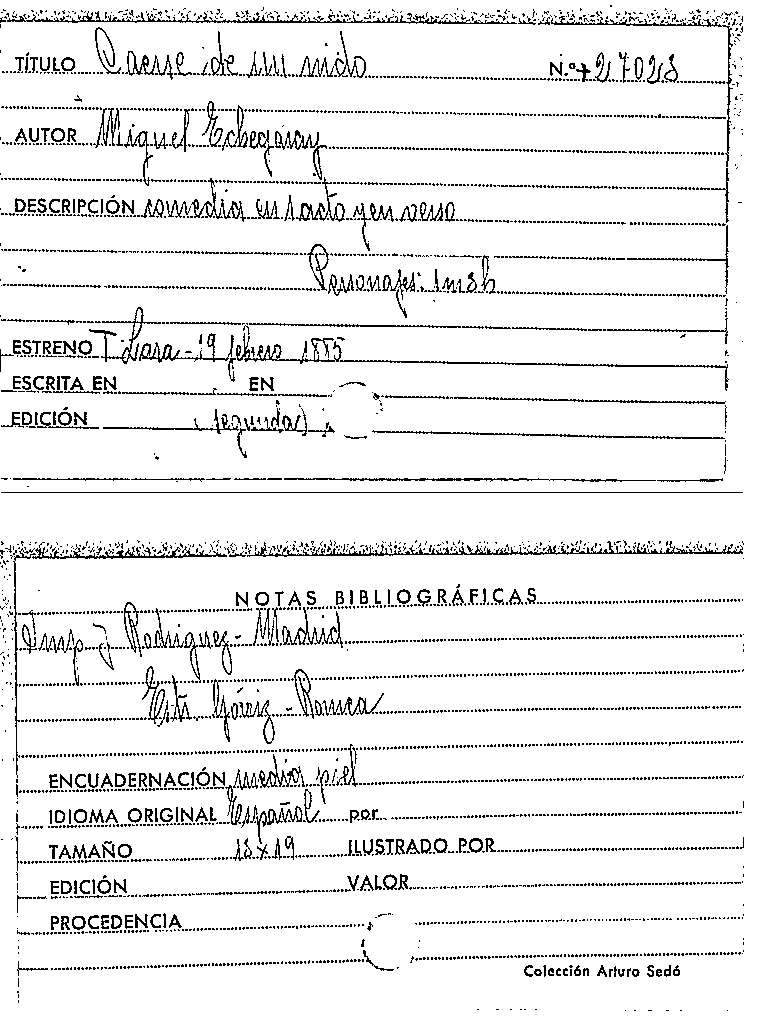 TÍTULO Caerse de un nido N.º 27028
AUTOR Miguel Echegaray
DESCRIPCIÓN comedia en 1 acto y en verso
Personajes: 1m3h
ESTRENO T Lara - 19 febrero 1885
ESCRITA EN EN
EDICIÓN (segunda)
NOTAS BIBLIOGRÁFICAS
Imp J Rodriguez - Madrid
Góriz - Romea
ENCUADERNACIÓN media piel
IDIOMA ORIGINAL Español por
TAMAÑO 13x19 ILUSTRADO POR
EDICIÓN VALOR
PROCEDENCIA
Colección Arturo Sedó